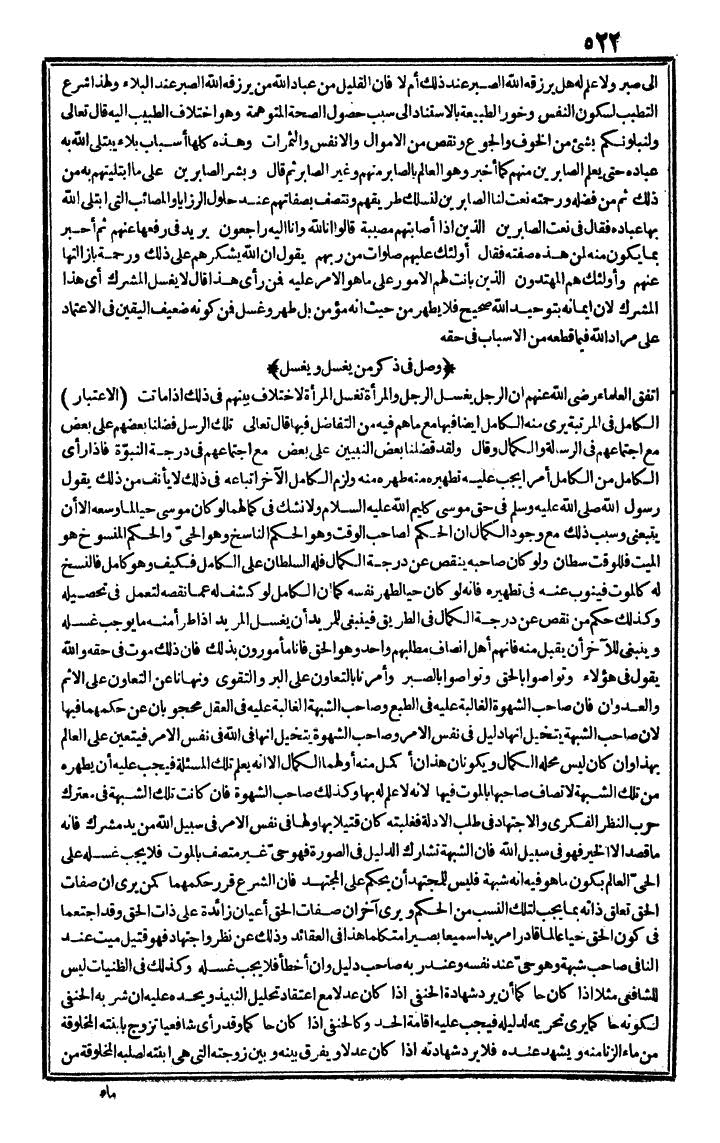 ٥٢٢
الى صبر ولا علم له هل يرزقه الله الصبر عند ذلك أم لا فان القليل من عباد الله من يرزقه الله الصبر عند البلاء ولهذا شرع
التطبب لسكون النفس وخور الطبيعة بالاستناد الى سبب حصول الصحة المتوهمة وهو اختلاف الطبيب اليه قال تعالى
ولنبلونكم بشئ من الخوف والجوع ونقص من الاموال والانفس والثمرات وهذه كلها أسباب بلاء يبتلى الله به
عباده حتى يعلم الصابرين منهم كما أخبر وهو العالم بالصابر منهم وغير الصابر ثم قال وبشر الصابرين على ما ابتليتهم به من
ذلك ثم من فضله ورحمته نعت لنا الصابرين لنسلك طريقهم ونتصف بصفاتهم عند حلول الرزايا والمصائب التى ابتلى الله
بها عباده فقال فى نعت الصابرين الذين اذا أصابتهم مصيبة قالوا انا لله وانا اليه راجعون يريد فى رفعها عنهم ثم أخبر
بما يكون منه لمن هذه صفته فقال أولئك عليهم صلوات من ربهم يقول ان الله يشكرهم على ذلك ورحمة بازالتها
عنهم وأولئك هم المهتدون الذين بانت لهم الامور على ما هو الامر عليه فمن رأى هذا قال لا يغسل المشرك أى هذا
المشرك لان ايمانه بتوحيد الله صحيح فلا يطهر من حيث انه مؤمن بل طهر وغسل فمن كونه ضعيف اليقين فى الاعتماد
على مراد الله فيما قطعه من الاسباب فى حقه
﴿وصل فى ذكر من يغسل ويغسل﴾
اتفق العلماء رضى الله عنهم ان الرجل يغسل الرجل والمرأة تغسل المرأة لا خلاف بينهم فى ذلك اذا ماتت (الاعتبار)
الكامل فى المرتبة يرى منه الكامل ايضا فيها مع ما هم فيه من التفاضل فيها قال تعالى تلك الرسل فضلنا بعضهم على بعض
مع اجتماعهم فى الرسالة والكمال وقال ولقد فضلنا بعض النبيين على بعض مع اجتماعهم فى درجة النبوّة فاذا رأى
الكامل من الكامل أمرا يجب عليه تطهيره منه طهره منه ولزم الكامل الآخر اتباعه فى ذلك لا يأنف من ذلك يقول
رسول الله صلى الله عليه وسلم فى حق موسى كليم الله عليه السلام ولا نشك فى كمالهما لو كان موسى حيا لما وسعه الا أن
يتبعنى وسبب ذلك مع وجود الكمال ان الحكم لصاحب الوقت وهو الحكم الناسخ وهو الحىّ والحكم المنسوخ هو
الميت فللوقت سطان ولو كان صاحبه ينقص عن درجة الكمال فله السلطان على الكامل فكيف وهو كامل فالنسخ
له كالموت فينوب عنه فى تطهيره فانه لو كان حيا لطهر نفسه كما ان الكامل لو كشف له عما نقصه لتعمل فى تحصيله
وكذلك حكم من نقص عن درجة الكمال فى الطريق فينبغى للمريد أن يغسل المريد اذا طرأ منه ما يوجب غسله
وينبغى للآخر أن يقبل منه فانهم أهل انصاف مطلبهم واحد وهو الحق فانا مأمورون بذلك فان ذلك موت فى حقه والله
يقول فى هؤلاء وتواصوا بالحق وتواصوا بالصبر وأمرنا بالتعاون على البر والتقوى ونهانا عن التعاون على الاثم
والعدوان فان صاحب الشهوة الغالبة عليه فى الطبع وصاحب الشبهة الغالبة عليه فى العقل محجوبان عن حكمهما فيها
لان صاحب الشبهة يتخيل انها دليل فى نفس الامر وصاحب الشهوة يتخيل انها فى الله فى نفس الامر فيتعين على العالم
بهذا وان كان ليس محله الكمال ويكونان هذان أكمل منه أو لهما الكمال الا انه يعلم تلك المسئلة فيجب عليه أن يطهره
من تلك الشبهة لاتصاف صاحبها بالموت فيها لانه لا علم له بها وكذلك صاحب الشهوة فان كانت تلك الشبهة فى معترك
حرب النظر الفكرى والاجتهاد فى طلب الادلة فغلبته كان قتيلا بها ولها فى نفس الامر فى سبيل الله من يد مشرك فانه
ما قصد الا الخير فهو فى سبيل الله فان الشبهة تشارك الدليل فى الصورة فهو حىّ غير متصف بالموت فلا يجب غسله على
الحىّ العالم بكون ما هو فيه انه شبهة فليس للمجتهد أن يحكم على المجتهد فان الشرع قرر حكمهما كمن يرى ان صفات
الحق تعلق ذاته بما يجب لتلك النسب من الحكم ويرى آخر ان صفات الحق أعيان زائدة على ذات الحق وقد اجتمعا
فى كون الحق حيا عالما قادرا مريدا سميعا بصيرا متكلما هذا فى العقائد وذلك عن نظر واجتهاد فهو قتيل ميت عند
النافى صاحب شبهة وهو حىّ عند نفسه وعند ربه صاحب دليل وان أخطأ فلا يجب غسله وكذلك فى الظنيات ليس
للشافعى مثلا اذا كان حاكما أن يرد شهادة الحنفى اذا كان عدلا مع اعتقاد تحليل النبيذ ويحده عليه ان شربه الحنفى
لكونه حاكما يرى تحريمه لدليله فيجب عليه اقامة الحد وكالحنفى اذا كان حاكما وقد رأى شافعيا تزوج بابنته المخلوقة
من ماء الزنا منه ويشهد عنده فلا يرد شهادته اذا كان عدلا ويفرق بينه وبين زوجته التى هى ابنته لصلبه المخلوقة من
ماء